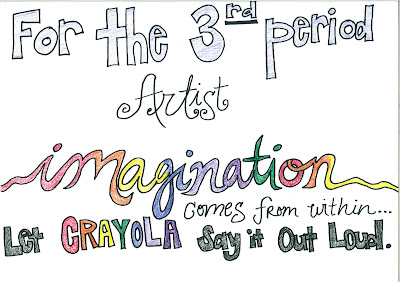 For the 3rd period
Artist
imagination
comes from within...
Let CRAYOLA Say it Out Loud.